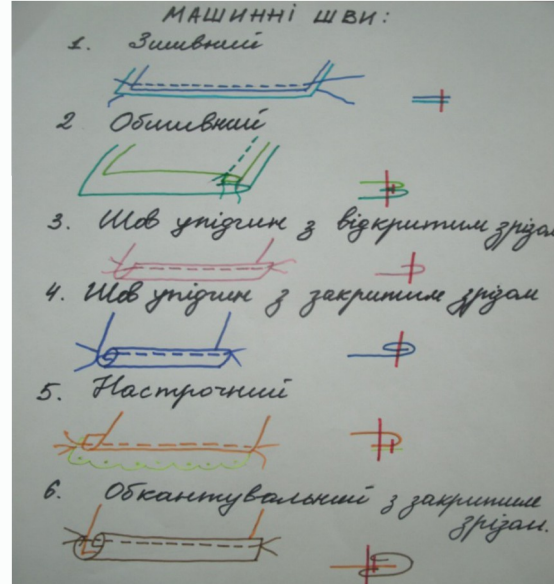 МАШИННІ ШВИ:
1. Зшивний
2 Обшивний
3. Шов упідгин з відкритим зрізом
4. Шов упідгин з закритим зрізом
5. Настрочний
6. Обкантувальний з закритим
зрізом.